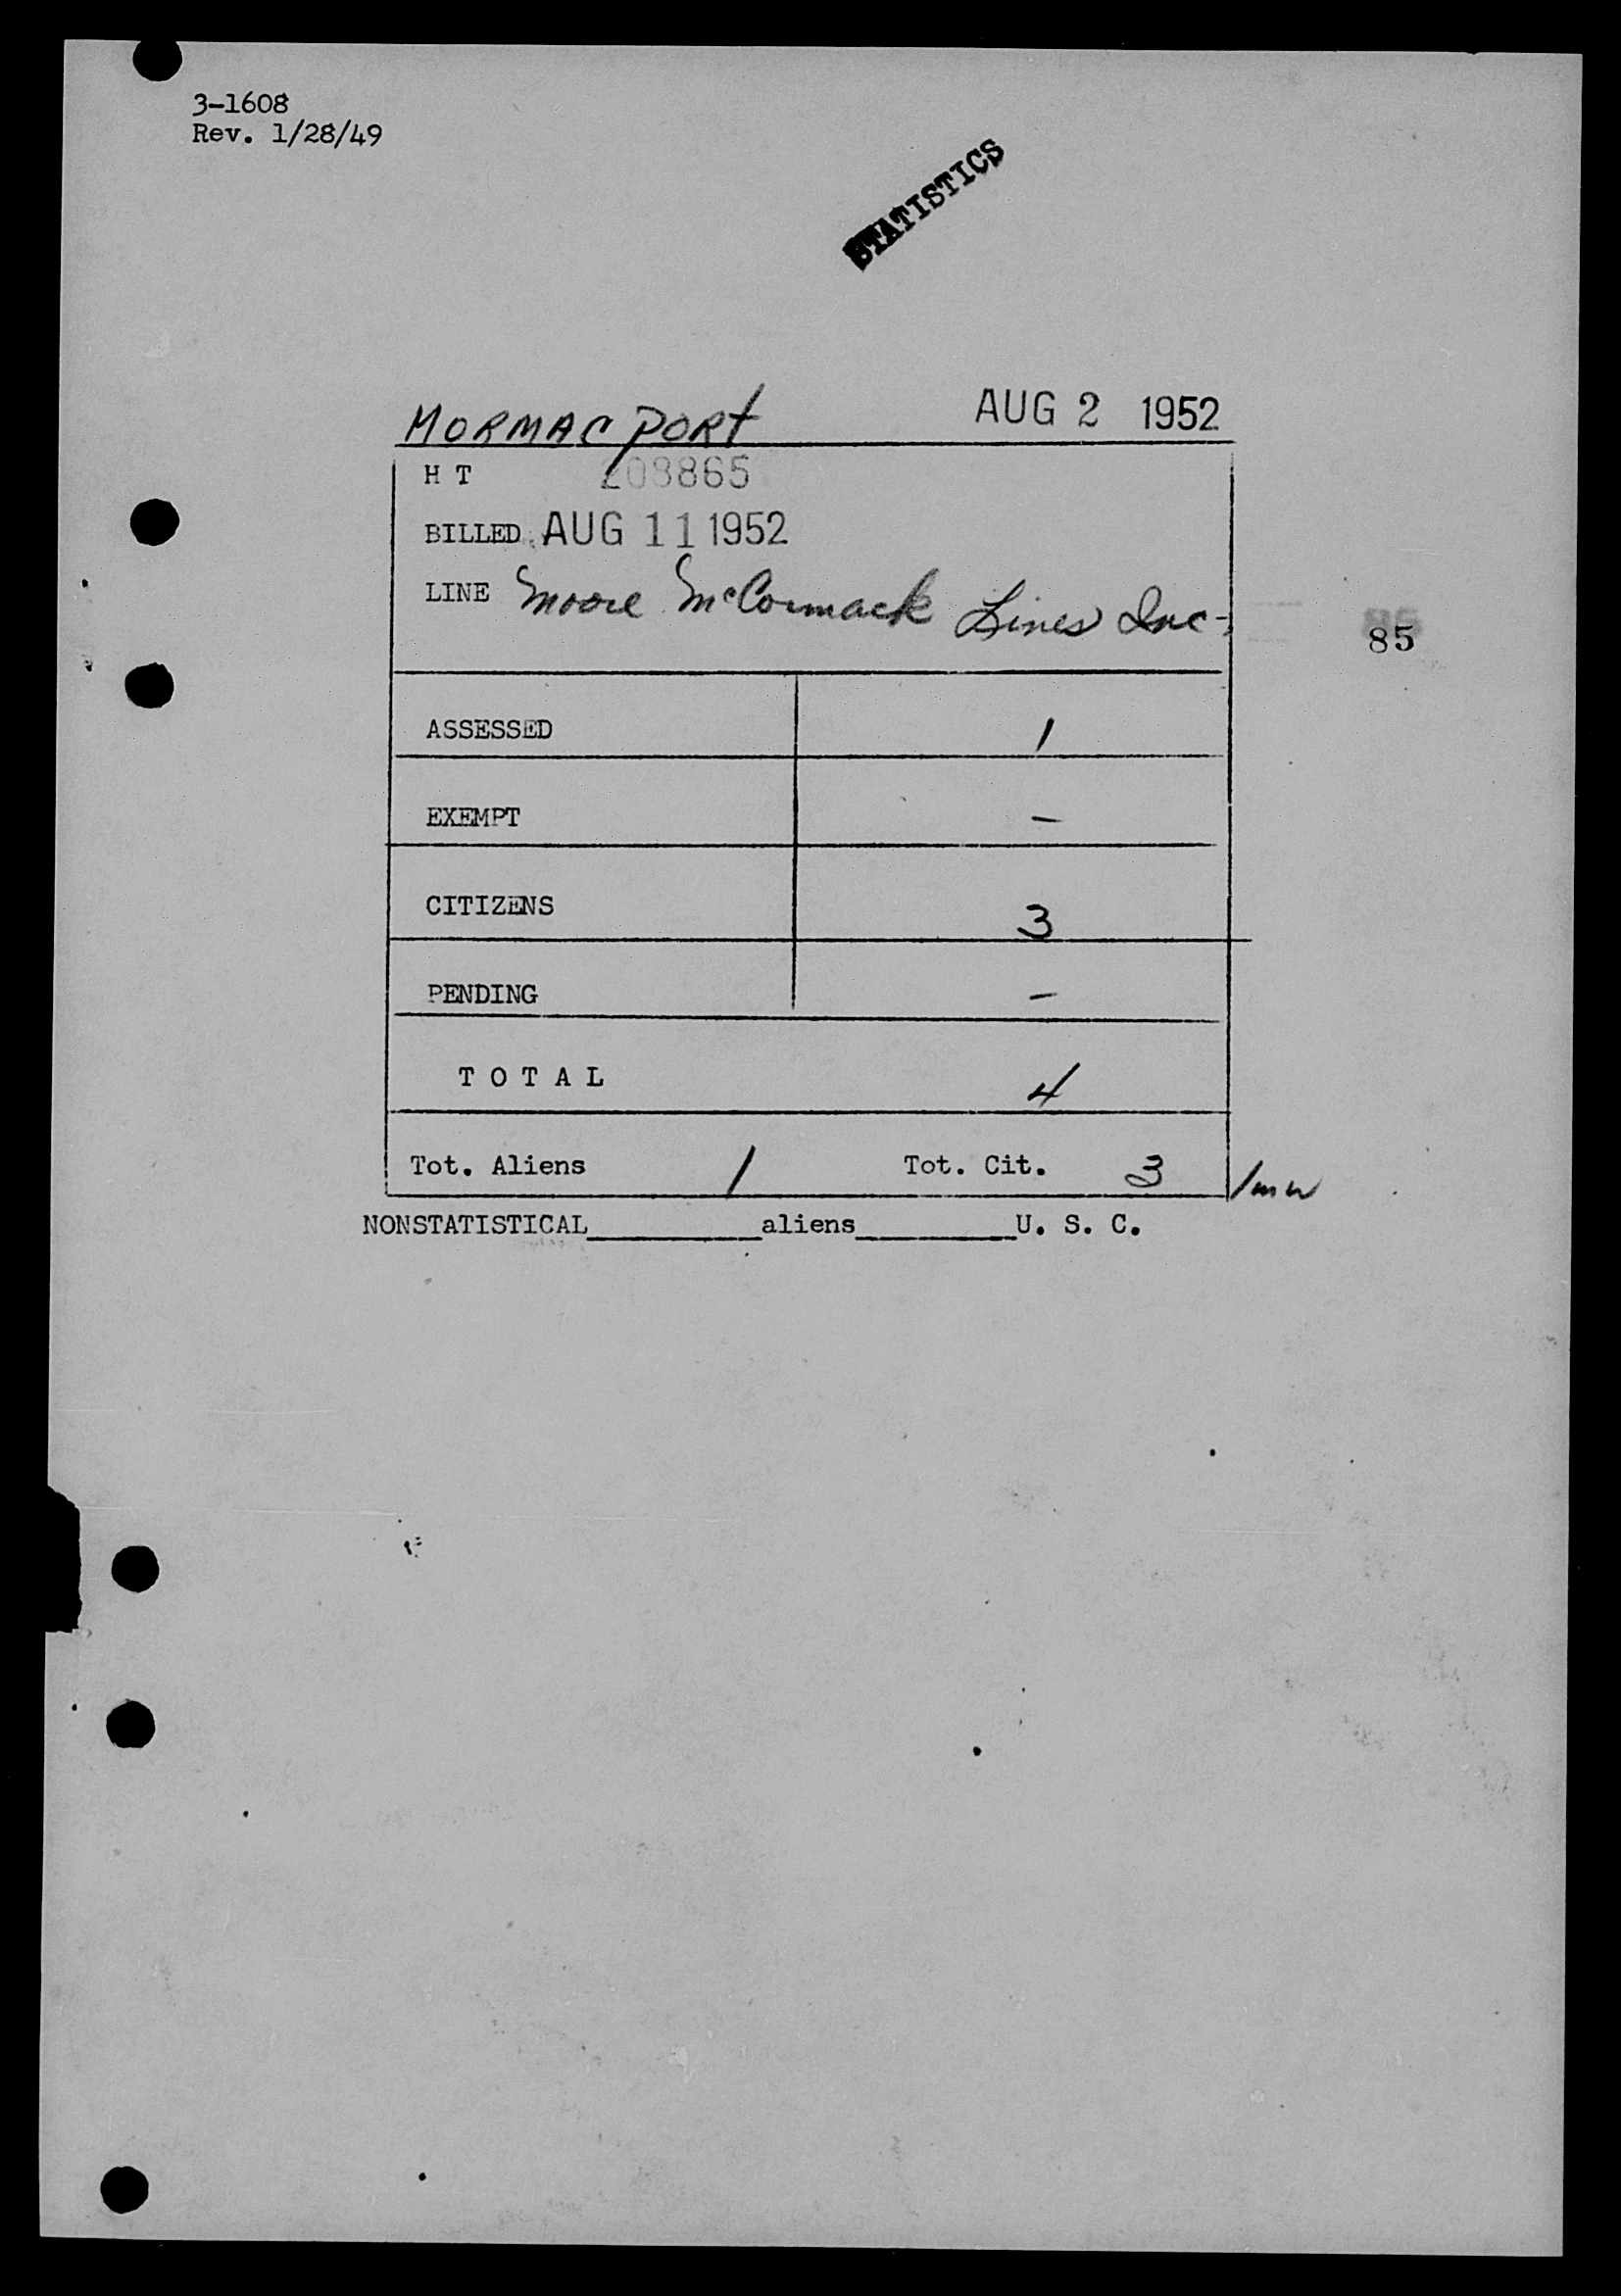 3-1608
Rev. 1/28/49
STATISTICS
MORMACPORT AUG 2 1952
H T 208865
BILLED AUG 11 1952
LINE Moore McCormack Lines Inc.
85
ASSESSED 1
EXEMPT -
CITIZENS 3
PENDING -
T O T A L 4
Tot. Aliens 1 Tot. Cit. 3
NONSTATISTICAL__________aliens__________U. S. C.